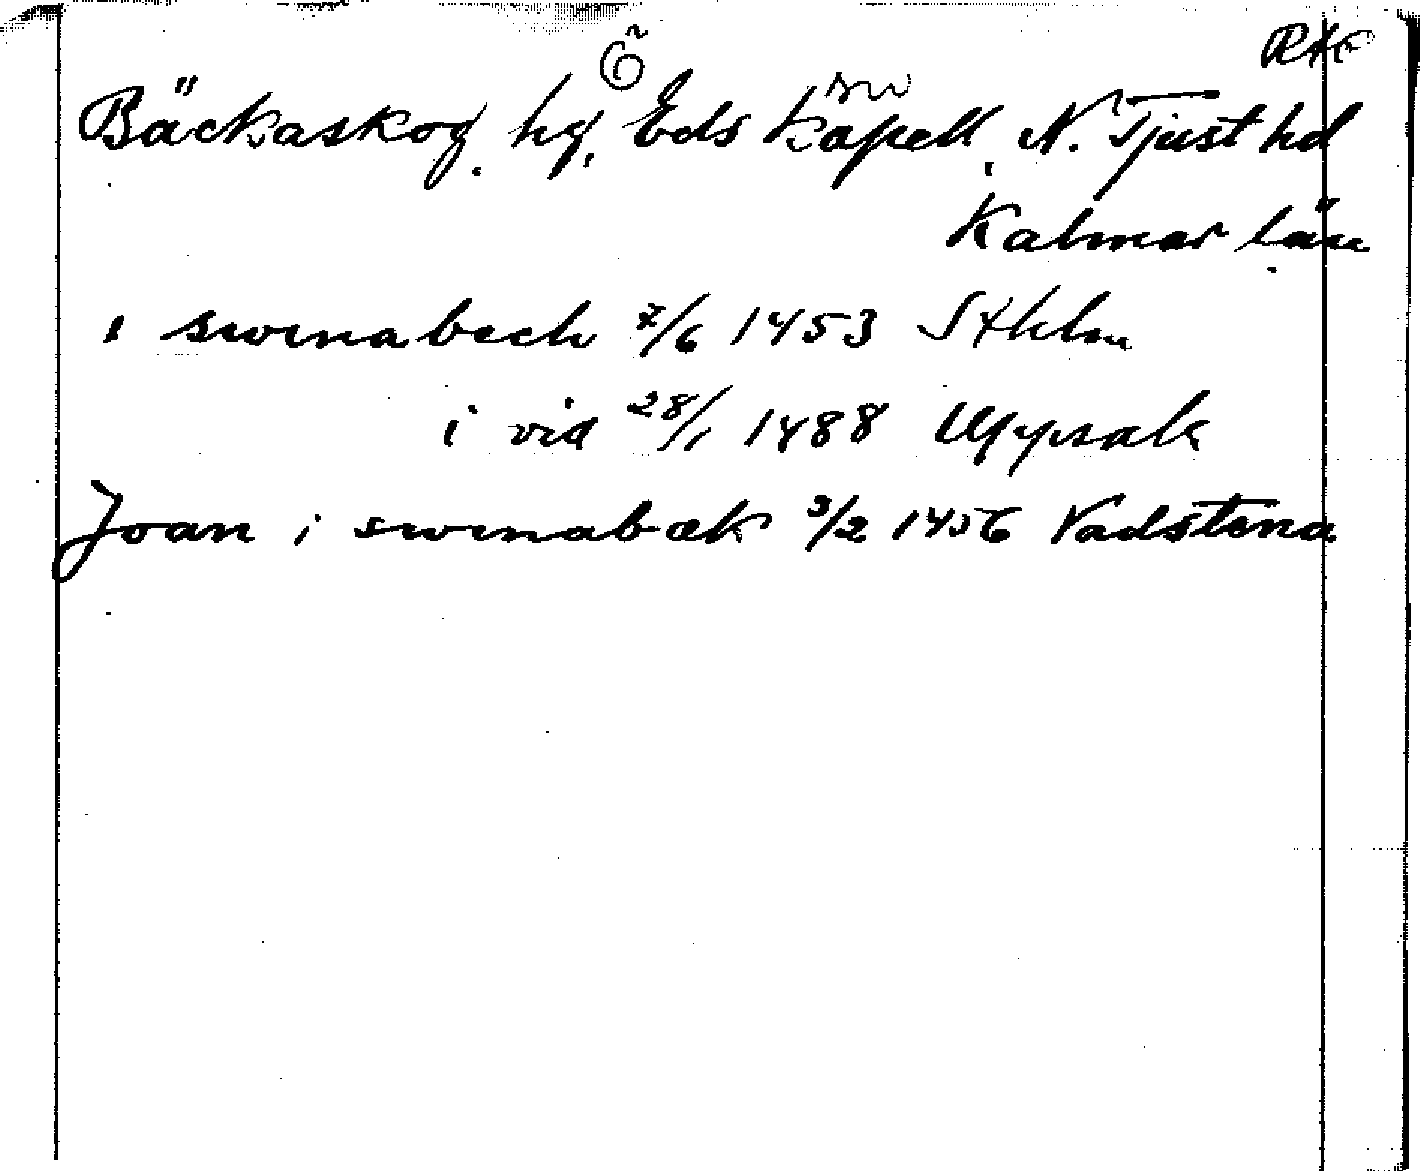 RAC
Bäckaskog. hg, Eds Kapell, N. Tjust hd
Kalmar län
i swinabech 7/6 1453 Sthlm
i vid 28/1 1488 Uppsala
Joan i swinabæk 3/2 1456 Vadstena